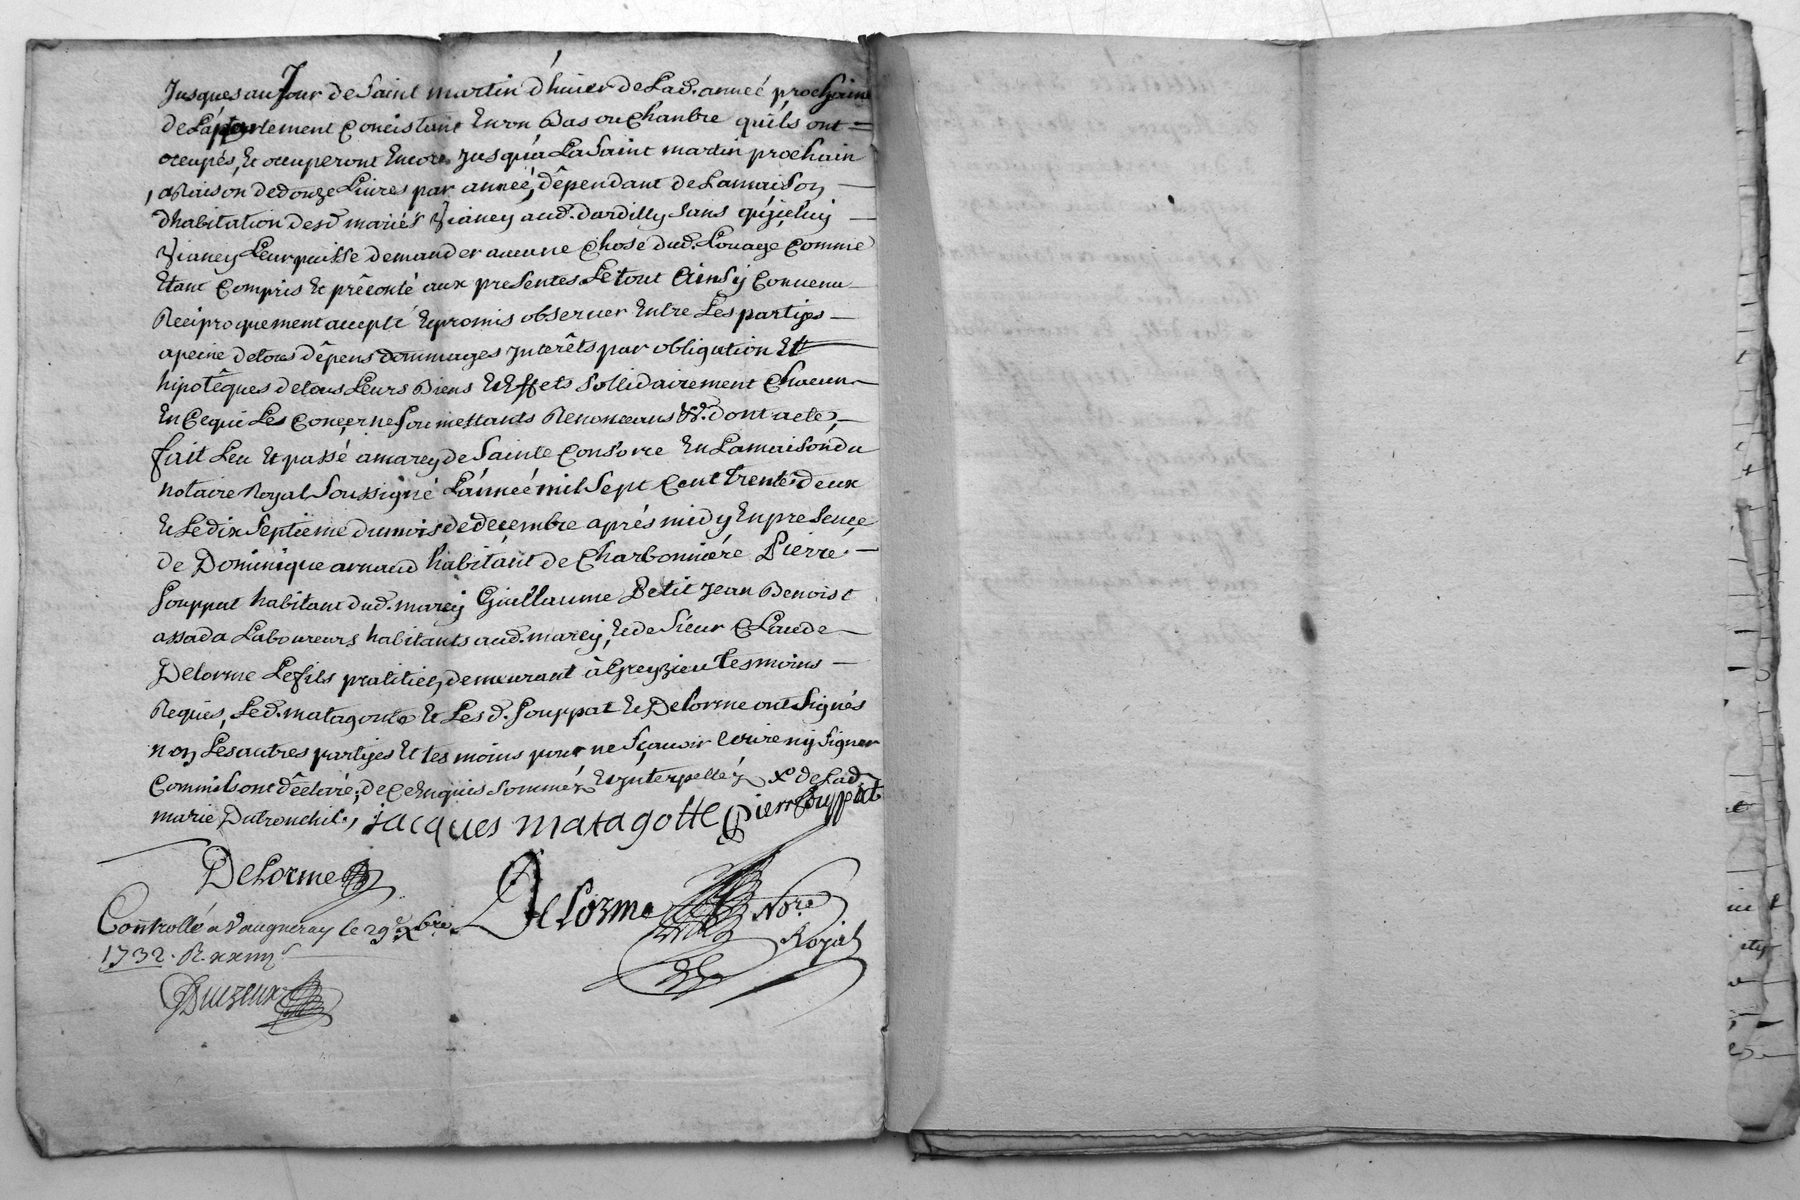 Jusques au Jour de Saint martin d'hiuer de Lad. anneé prochaine
de L'apartement Concistant En vn Bas ou Chanbre quils ont =
occupés, Et occuperont Encore Jusqu'a La Saint martin prochain
, a Raison de douze Liures par anneé, dêpendant de La maison —
d'habitation desd mariés Vianey aud. dardilly sans qu'iceluy —
Vianey Leur puisse demander aucune Chose dud. Louage Comme
Etant Compris Et prêconté aux presentes Le tout Ainsÿ Conuenu —
Reciproquement accepté Et promis obseruer Entre Les partyes —
a peine de tous dêpens dommages Jnterêts par obligation Et
hipotêques de tous Leurs Biens Et Effets Sollidairement Chacun —
En Ce qui Les Concerne Soumettants Renonceans &c. dont acte, —
fait Leu Et passé a marcy de Sainte Consorce En La maison du
notaire Royal Soussigné L'anneé mil Sept Cent trente deux
Et Le dix Septieme du mois de decembre aprés midy En presence
de Dominique arnaud habitant de Charbonniére Pierre —
Souppat habitant dud. marcy Guillaume Petit Jean Benoist
assada Laboureurs habitants aud. marcy, Et de Sieur Claude —
Delorme Le fils praticien demeurant à Greyzieu tesmoins —
Requis, Led. matagotte Et Lesd. Souppat Et Delorme ont Signés
non Les autres partyes Et tesmoins pour ne Sçauoir Ecrire ny Signer
Comm'ils ont dêclaré, de Ce Enquis Sommés Et Jnterpellés x de Lad
marie Dutronchil, Jacques matagotte Pierre Souppat
Delorme
Delorme Nore
Royal
Controllé a Vaugneray le 29e xbre
1732. R. xxiiij s
Duczeux